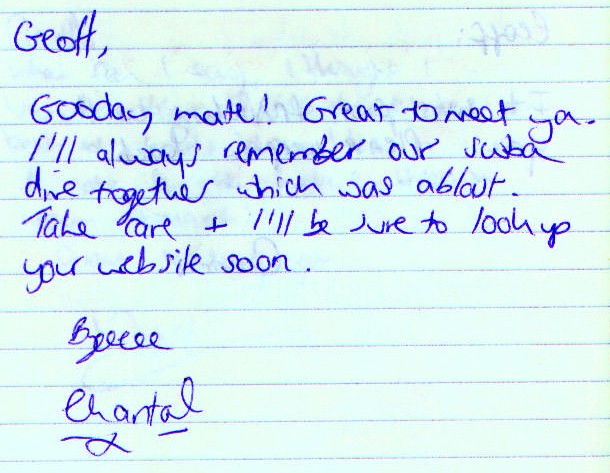 Geoff,
Gooday mate! Great to meet ya.
I'll always remember our scuba
dive together which was a blast.
Take care + I'll be sure to look up
your website soon.
Byeeee
Chantal